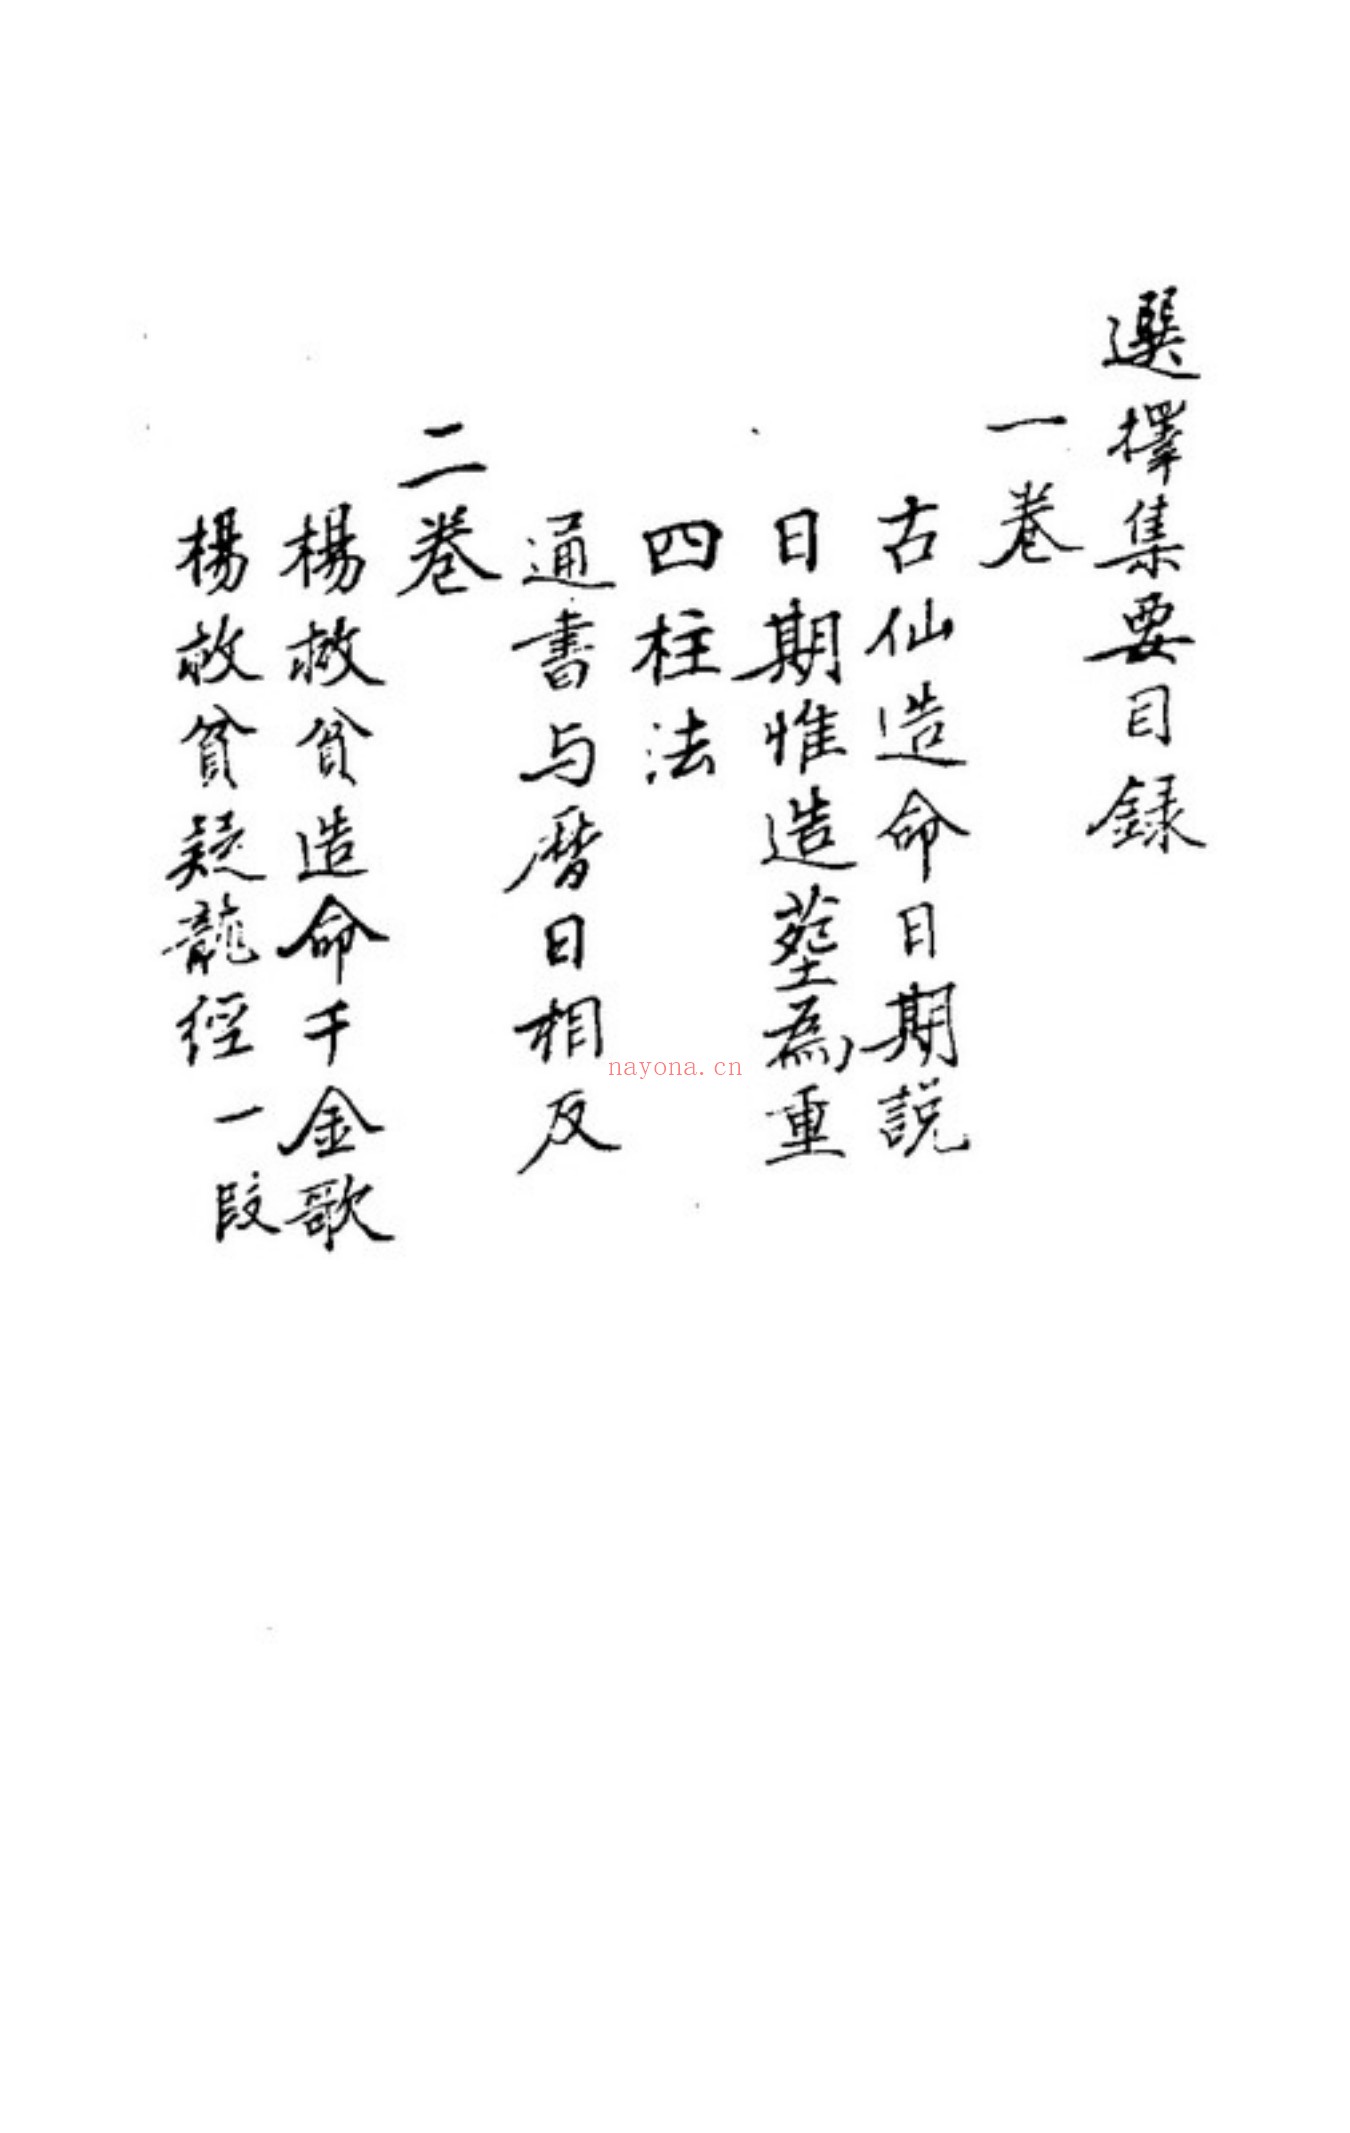 選擇集要目録
一卷
古仙造命日期説
日期惟造塟為重
四柱法
通書与曆日相反
二卷
楊救貧造命千金歌
楊救貧疑龍經一段
nayona.cn